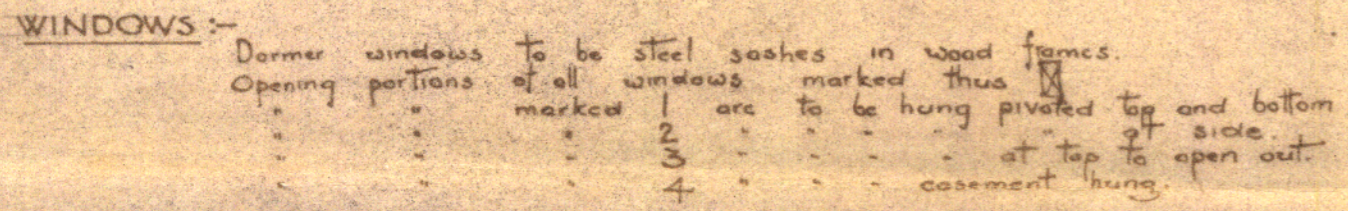 WINDOWS :-
Dormer windows to be steel sashes in wood frames.
Opening portions of all windows marked thus
" " marked 1 are to be hung pivoted top and bottom
" " " 2 " " " " " at side.
" " " 3 " " " " at top to open out.
" " " 4 " " " casement hung.